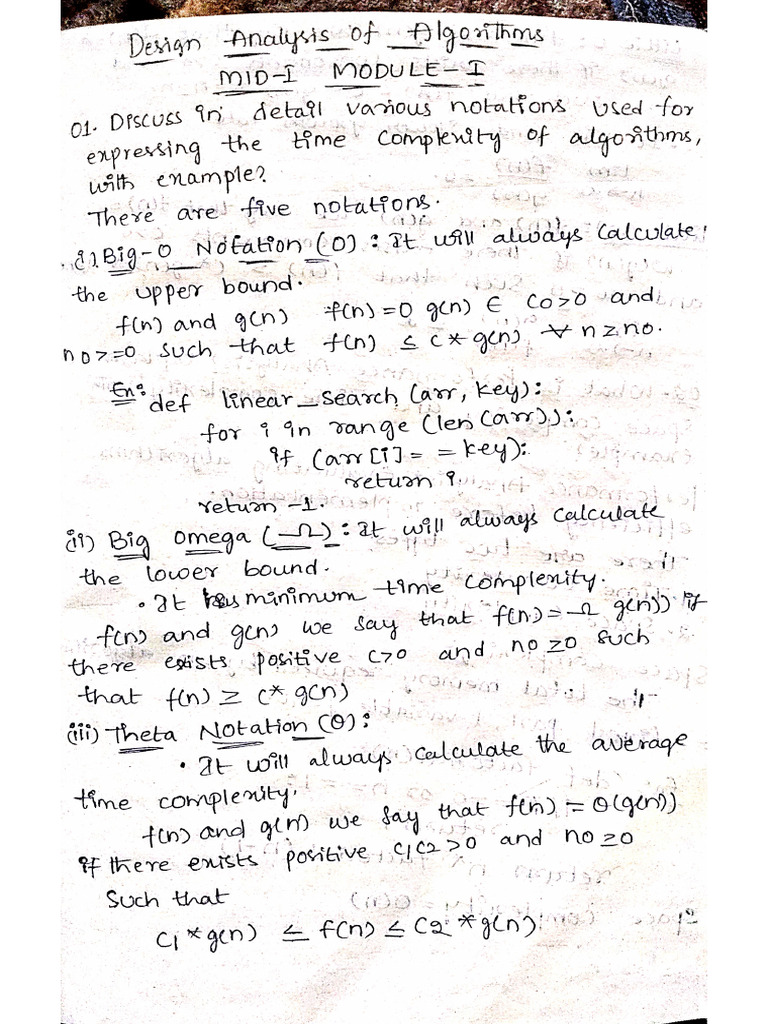 Design Analysis of Algorithms
MID-I MODULE-I
01. Discuss in detail various notations used for
expressing the time complexity of algorithms,
with example?
There are five notations.
(i). Big-O Notation (O) : It will always calculate
the upper bound.
f(n) and g(n) f(n) = O g(n) ∈ C0>0 and
n0>=0 such that f(n) ≤ c * g(n) ∀ n ≥ n0.
Ex: def linear_search (arr, key):
for i in range (len (arr)):
if (arr [i] = = key):
return i.
return -1.
(ii) Big omega (Ω) : It will always calculate
the lower bound.
• It has minimum time complexity.
f(n) and g(n) we say that f(n) = Ω g(n)) if
there exists positive c>0 and n0 ≥0 such
that f(n) ≥ c* g(n)
(iii) Theta Notation (θ) :
• It will always calculate the average
time complexity.
f(n) and g(n) we say that f(n) = θ(g(n))
if there exists positive c1 c2 >0 and n0 ≥0
Such that
c1 * g(n) ≤ f(n) ≤ C2 * g(n)